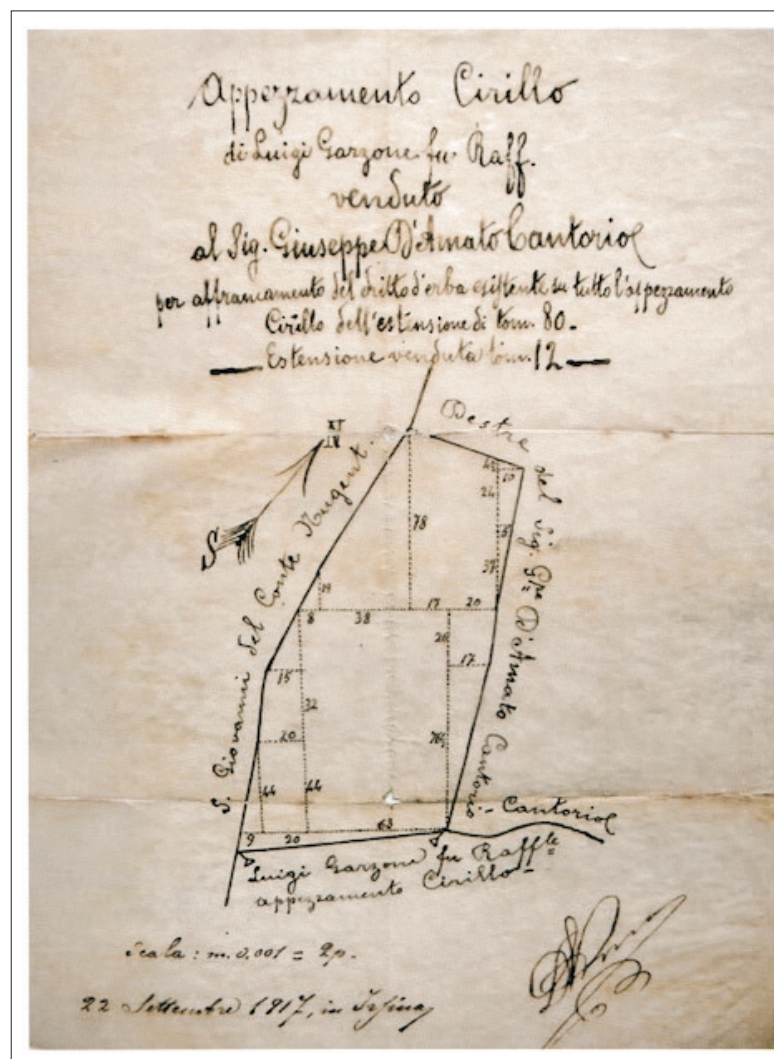 Appezzamento Cirillo
di Luigi Garzone fu Raff.
venduto
al Sig. Giuseppe D'Amato Cantorio
per affrancamento del dritto d'erba esistente su tutto l'appezzamento
Cirillo dell'estensione di tom. 80.-
Estensione venduta tom. 12
S
S. Giovanni del Conte Nugent.
Destre del Sig. Gpe D'Amato Cantorio.
10
24
5
37
78
14
8
38
17
20
26
17
15
32
20
44
44
9
20
63
- Cantorio
Luigi Garzone fu Raffle
appezzamento Cirillo-
Scala: m. 0.001 = 2p.
22 Settembre 1917, in Irsina